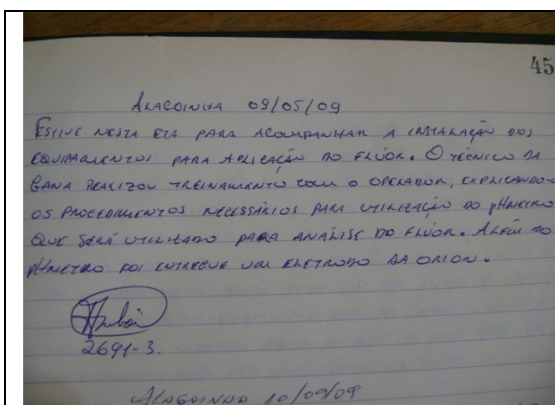 45
Alagoinha 09/05/09
Estive nesta ETA para acompanhar a instalação dos
equipamentos para aplicação do flúor. O técnico da
Gana realizou treinamento com o operador, explicando
os procedimentos necessários para utilização do pHmetro
que será utilizado para análise do flúor. Além do
pHmetro foi entregue um eletrodo da Orion.
2691-3.
Alagoinha 10/09/09